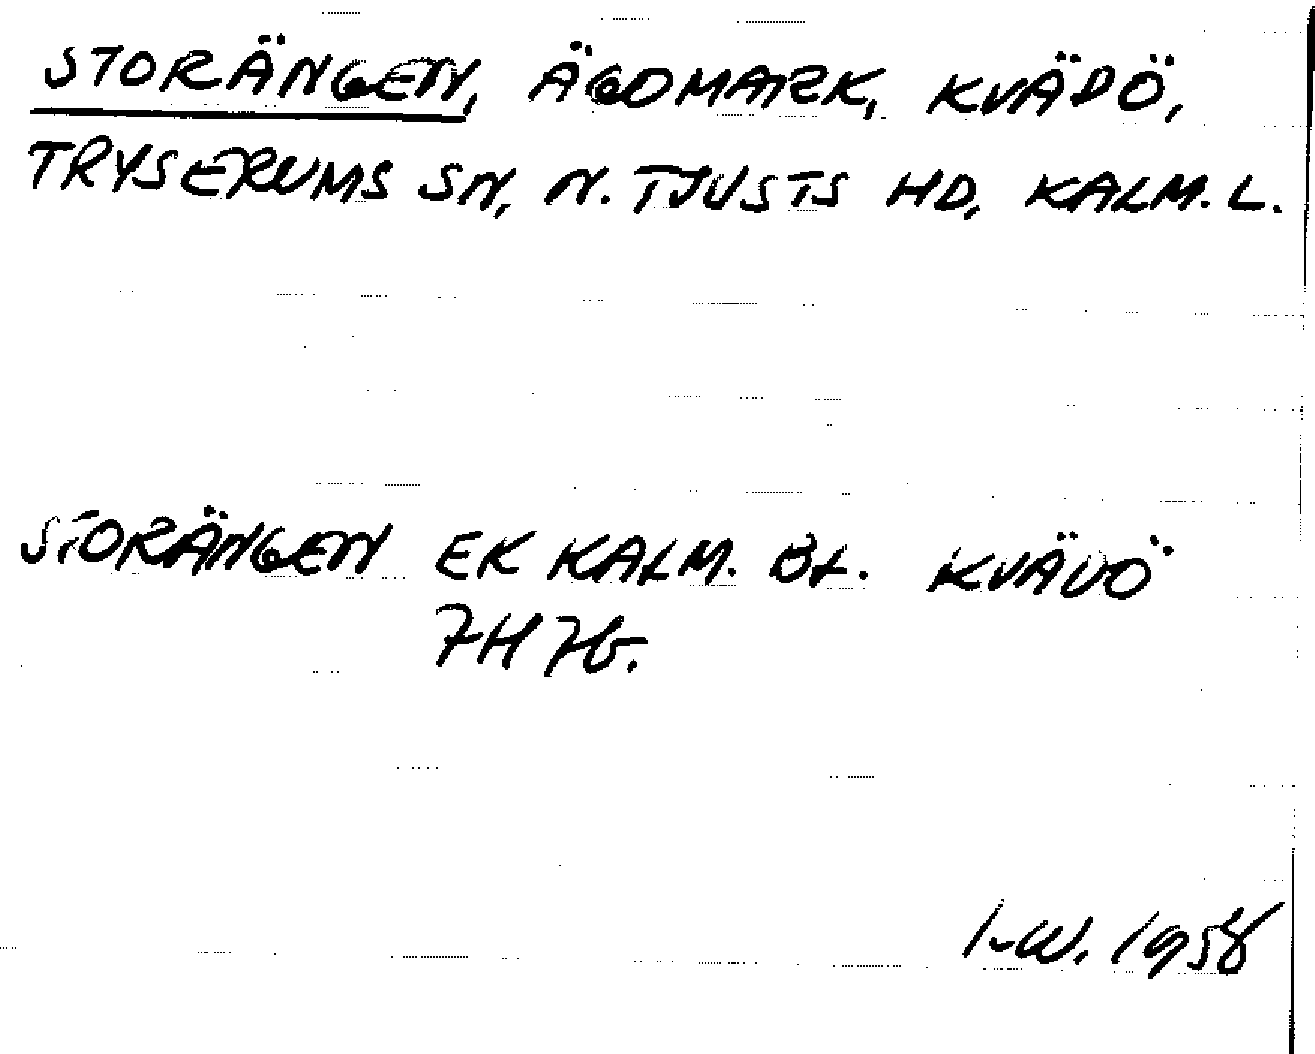 STORÄNGEN, ÄGOMARK, KVÄDÖ,
TRYSERUMS SN, N. TJUSTS HD, KALM. L.
STORÄNGEN EK KALM. BL. KVÄDÖ
7H 7b.
I-W. 1958